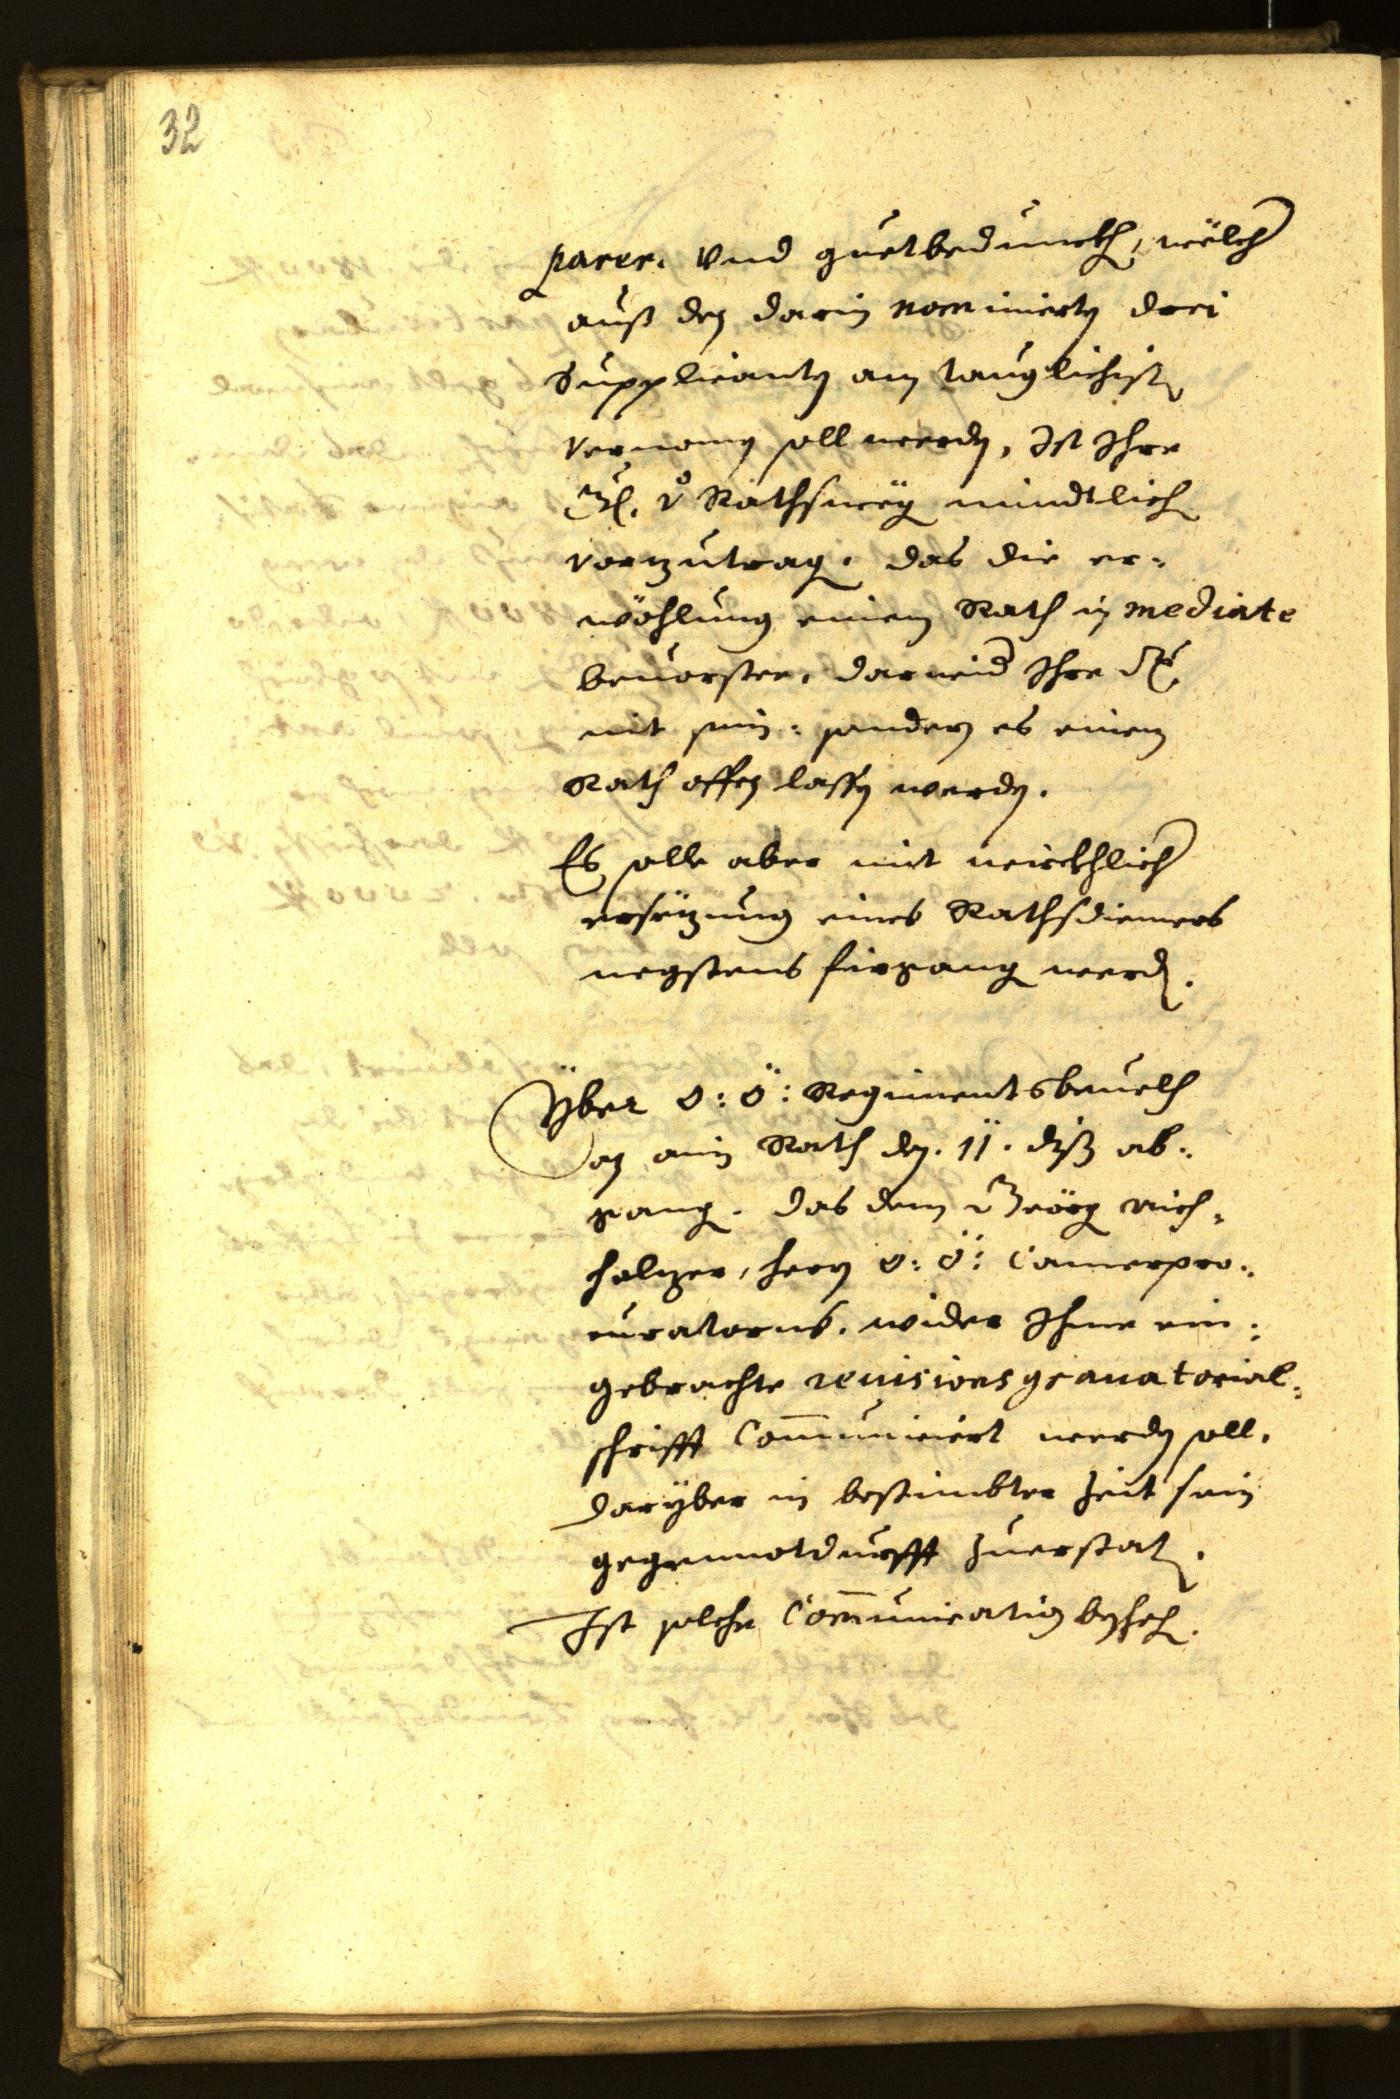 32
parer. Vnd guetbedunckh, wëlcher
auß den darin nominierten drei
Supplicanten am tauglichisten
vernomen soll werden, Ist Ihre
Rathsweg mindtlich
vorzutragen. das die er-
wöhlung einem Rath in mediate
beuorstee. darneid Ihre
nit sein: sondern es einem
Rath offen lassen werden.
Es solle aber mit würckhlicher
ersëtzung eines Rathsdieners
negstens fürgangen werden.
Yber O: Ö: Regimentsbeuelch
an ain Rath den. 11. diß ab-
gangen. das dem Geörg Aich-
holzer, herrn O: Ö: Camerpro-
curatorns. wider Ihme ein-
gebrachte reuisions grauatorial-
schrifft Communiciert werden soll.
Daryber in bestimbter zeit sein
gegennotdurfft zuerstaten.
Ist solche Communication beschehen.